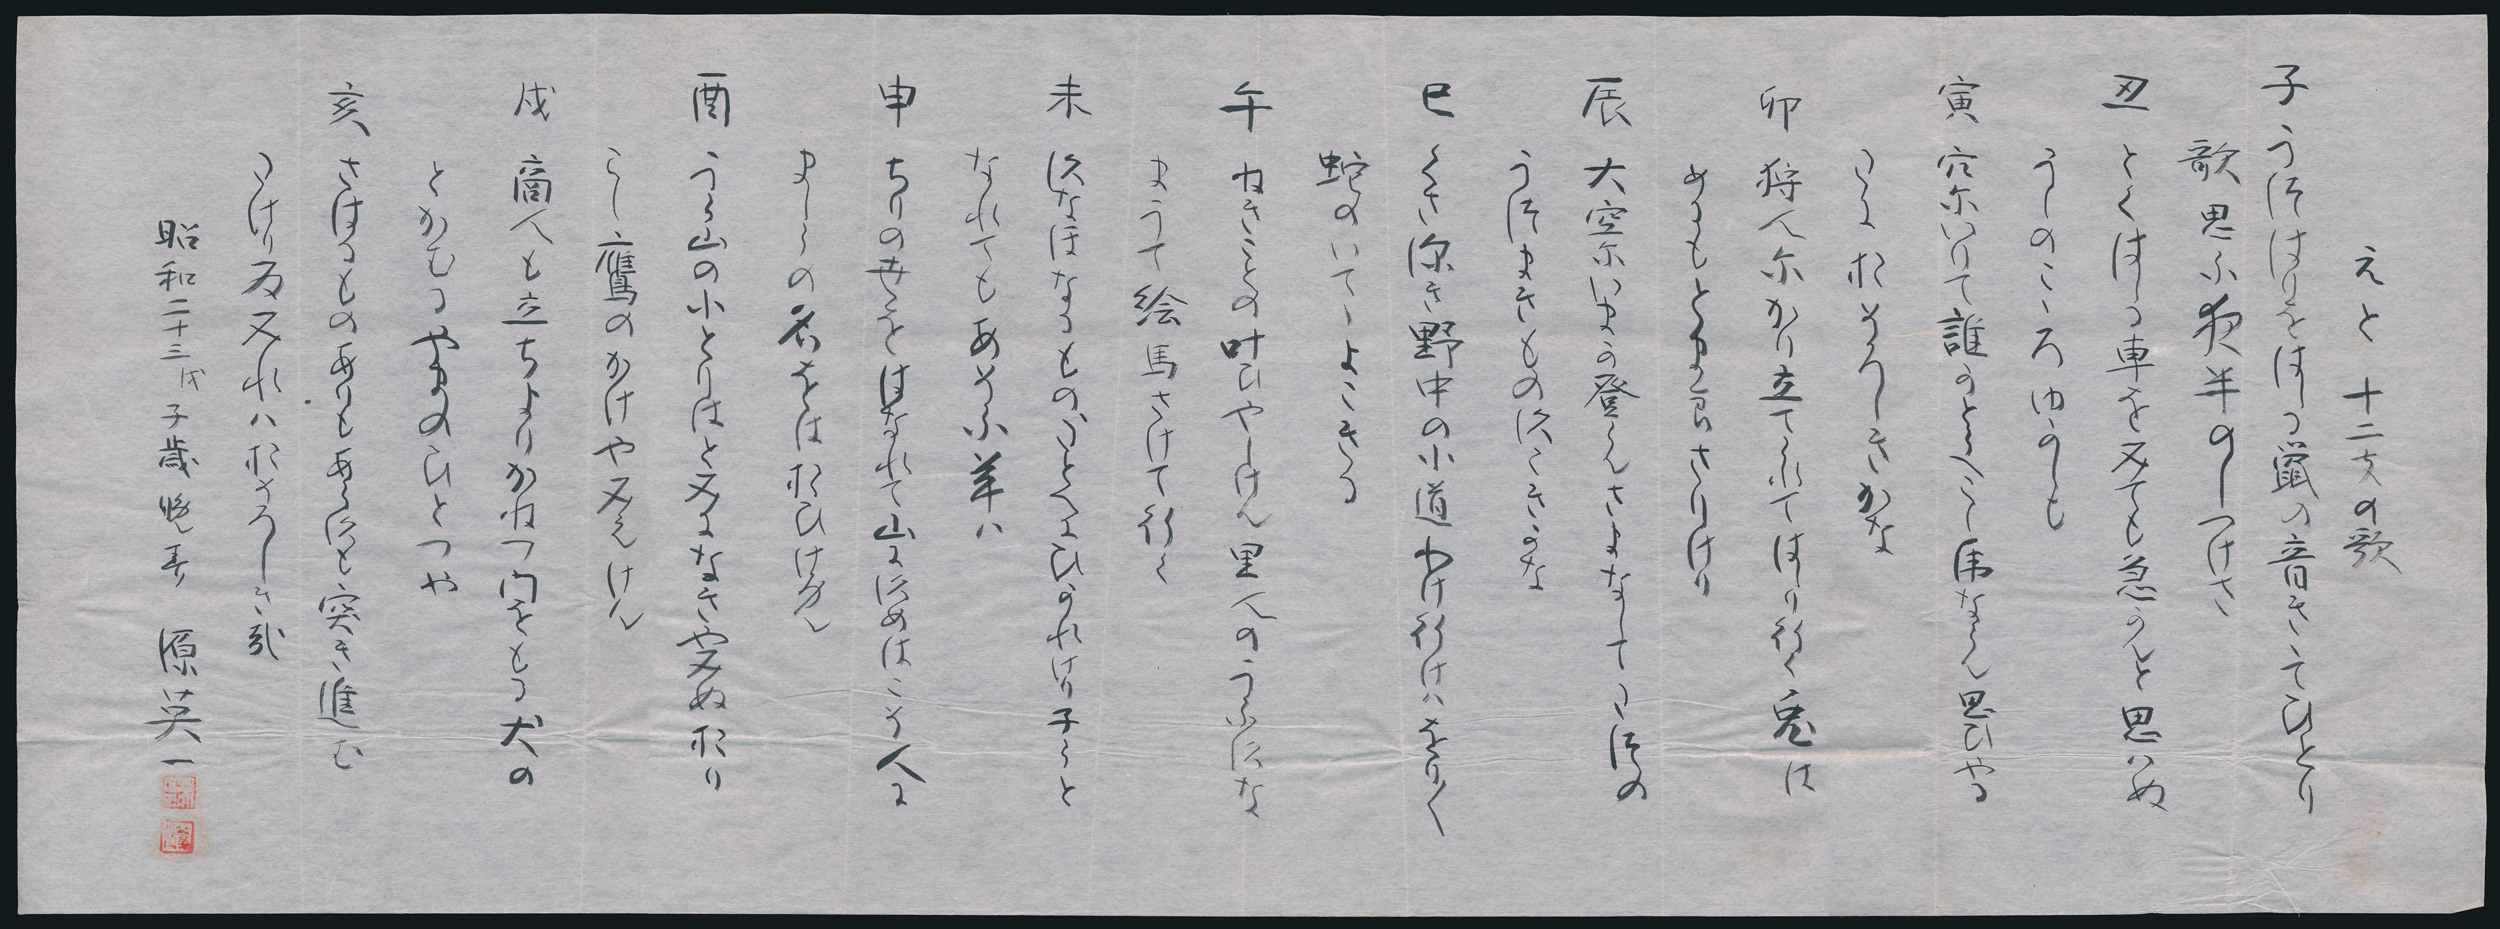 えと十二支の歌
子 うつはりをはしる鼠の音きゝてひとり
歌思ふ夜半のしつけさ
丑 とくはしる車を見ても急かんと思はぬ
うしのこゝろゆかしも
寅 穴にいりて誰かとらへこし虎ならん思ひやる
たにおそろしきかな
卯 狩人にかり立てられてはしり行く兎は
めにもとまらさりけり
辰 大空にいまか登らんさまなしてたつの
うつまきものすこきかな
巳 くさ深き野中の小道わけ行けはをり〳〵
蛇のいてゝよこきる
午 ねきことの叶ひやしけん里人のうふすな
まうて絵馬さけて行く
未 すなほなるもののたとへにひかれけり子らと
なれてもあそふ羊は
申 ちりの世をはなれて山にすめはこそ人に
ましらの名をはおひけ
酉 うら山の小とりはとみになきやみぬおり
こし鷹のかけや見えけん
戌 商人も立ちよりかねつ門をもる犬の
とかむるやまのひとつや
亥 さはるものありもあらすも突き進む
たけりゐ見れはおそろしき哉
昭和二十三戊子歳晩春 原英一